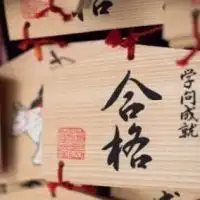 格
学問成就
合格